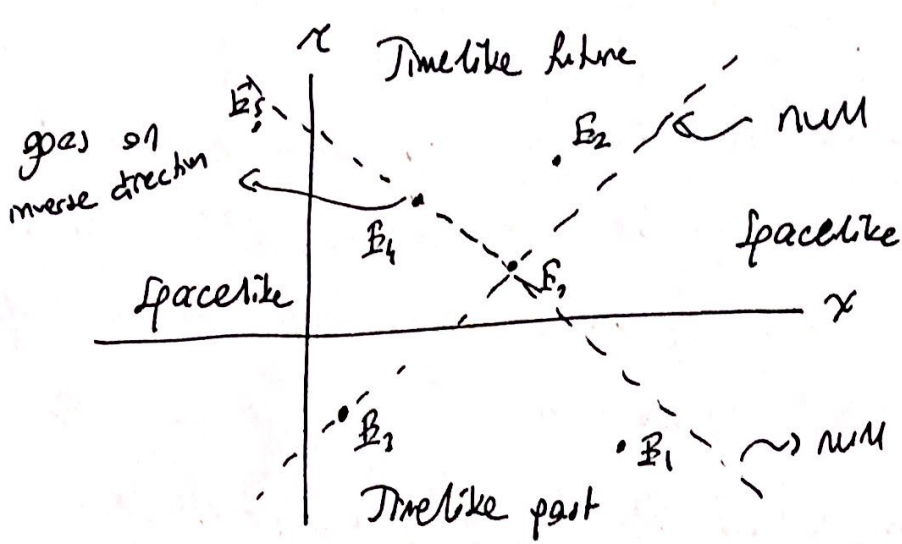 τ
Timelike future
E5
E2
null
goes on
inverse direction
E4
Spacelike
Spacelike
E,
x
E3
E1
null
Timelike past